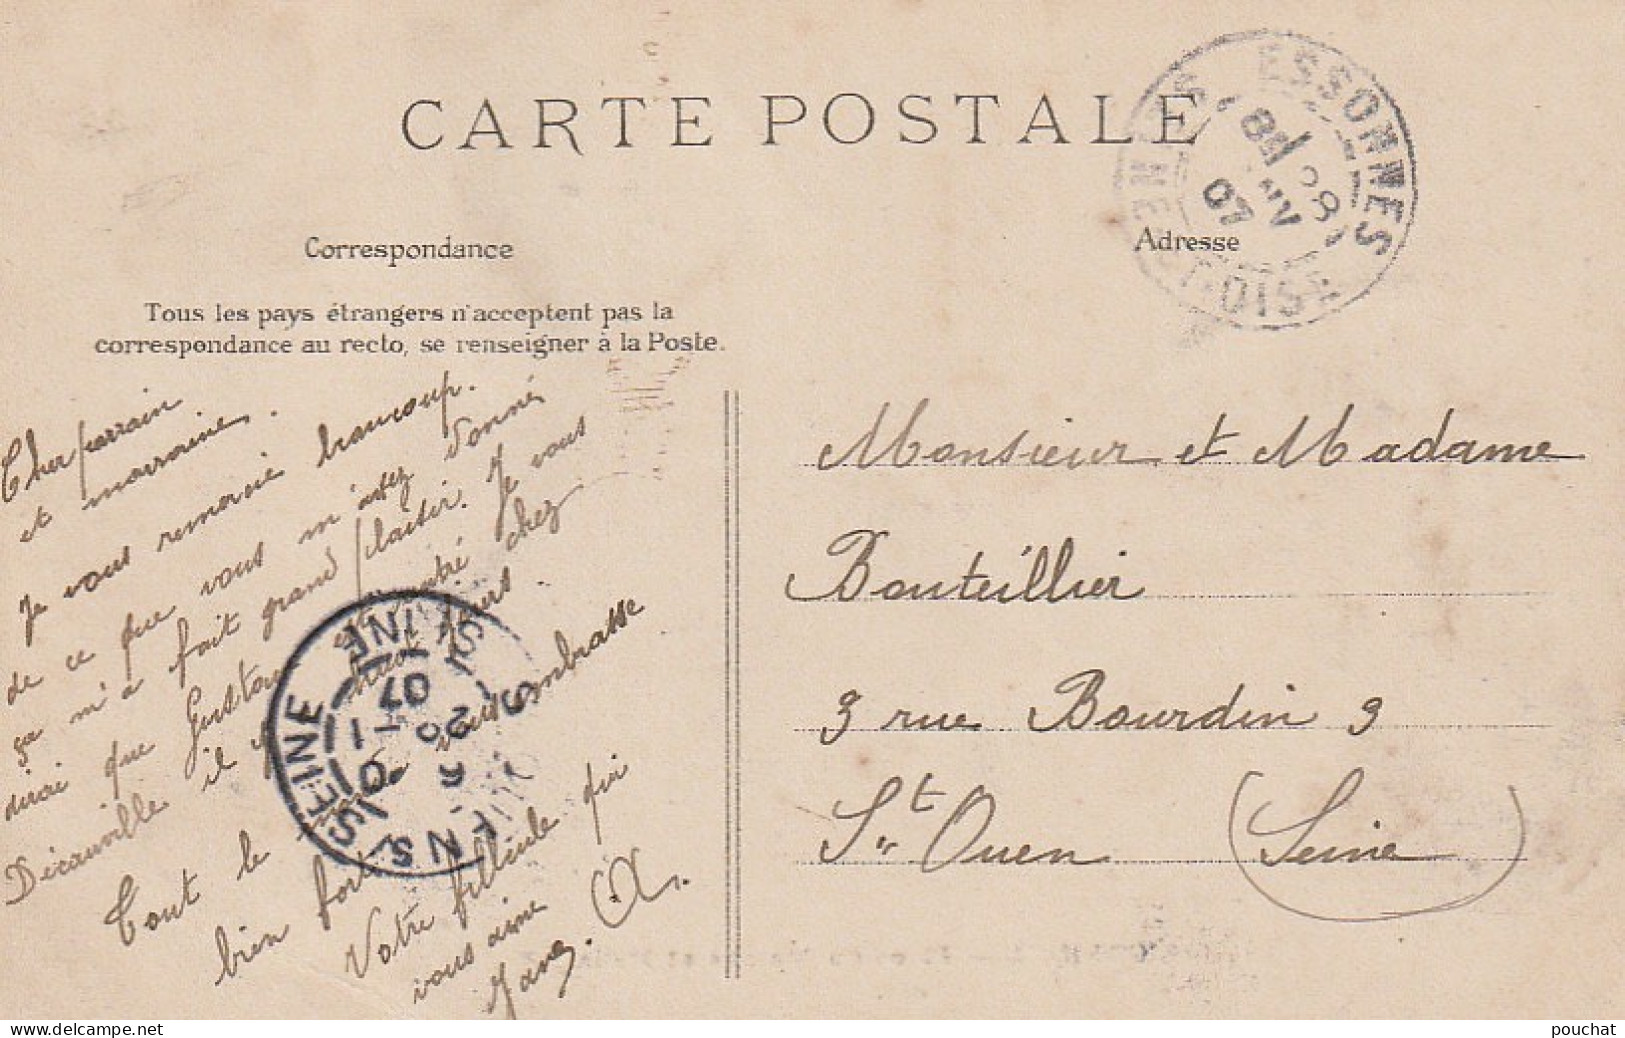 CARTE POSTALE
Correspondance
Adresse
Tous les pays étrangers n'acceptent pas la
correspondance au recto, se renseigner à la Poste.
Cher parrain
et marraine.
Je vous remercie beaucoup.
de ce que vous m'avez donné
ça m'a fait grand plaisir. Je vous
dirai que Gustave est rentré chez
Decauville il y a huit jours.
Tout le monde vous embrasse
bien fort
Votre filleule qui
vous aime
Jane. A.
Monsieur et Madame
Bouteillier
3 rue Bourdin 3
St Ouen (Seine)
ESSONNES
SEINE ET OISE
07
SEINE
07
delcampe.net
pouchat